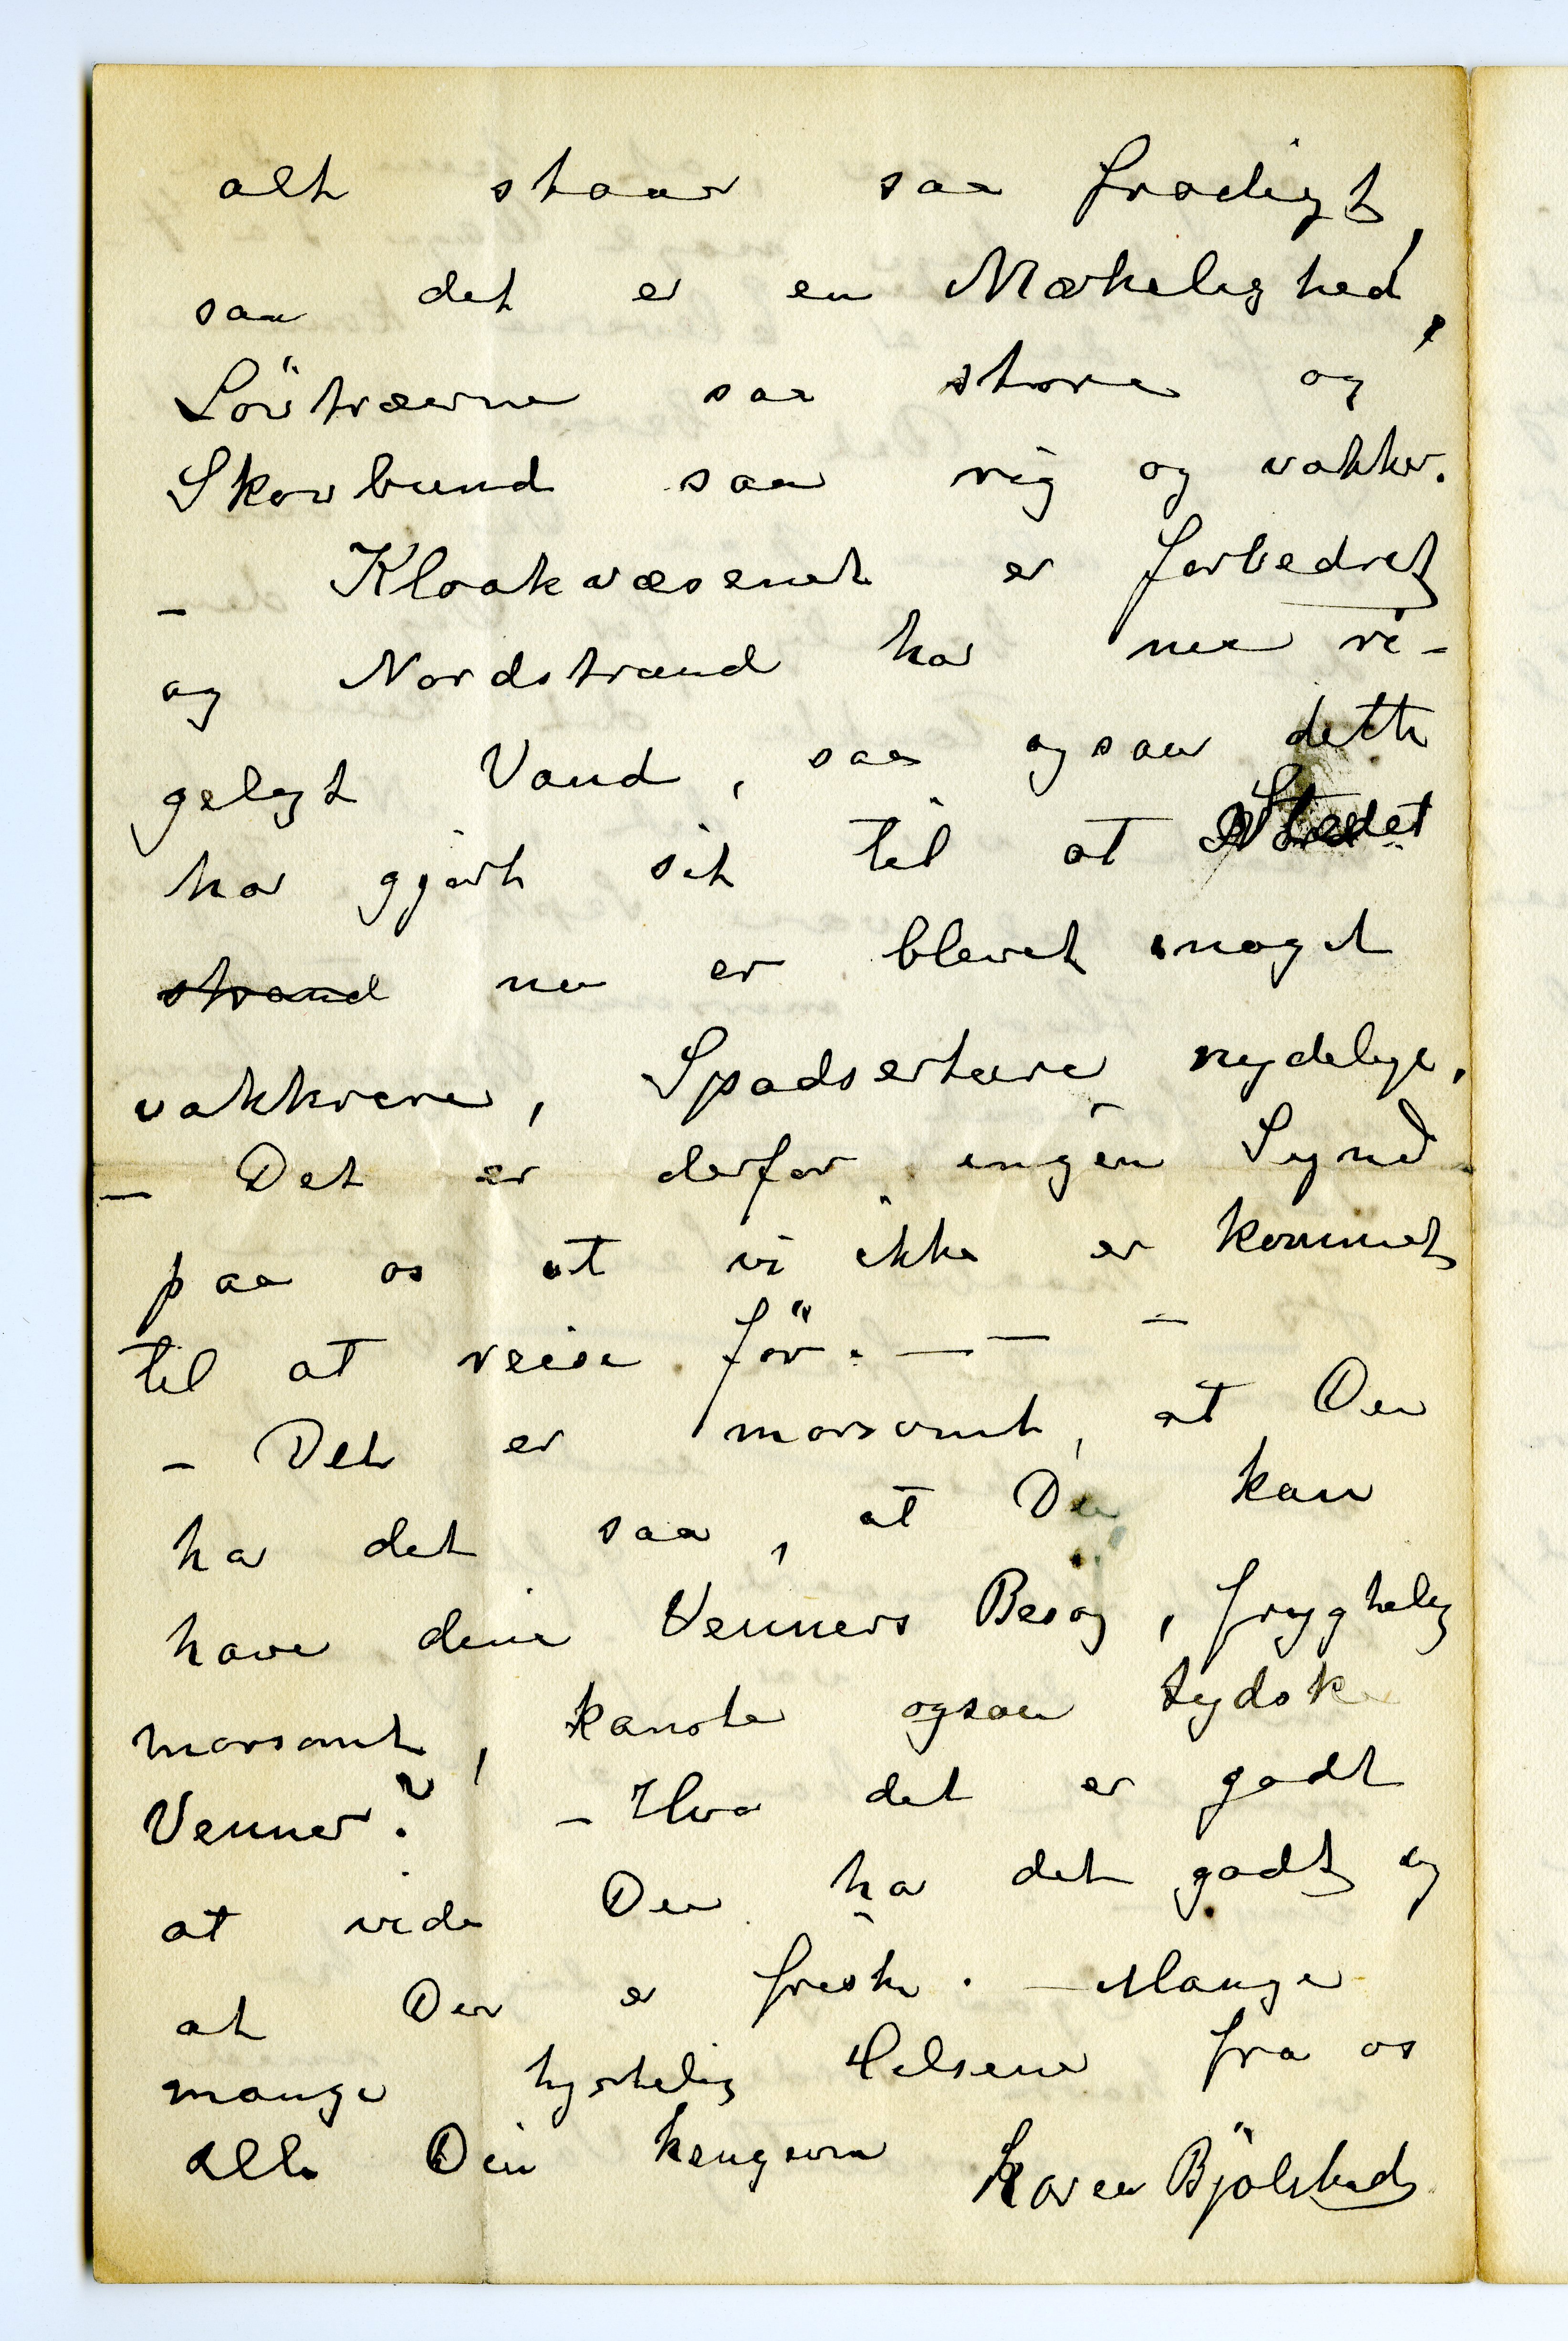 alt staar saa frodigt,
saa det er en Mærkelighed,
Lövtræerne saa store og
Skovbund saa rig og vakker.
– Kloakvæsenet er forbedret
og Nordstrand har nu ri-
geligt Vand, saa ogsaa dette
har gjørt sit til at Stedet
strand nu er blevet noget
vakkrere, Spadserture nydelige.
– Det er derfor ingen Synd
paa os at vi ikke er kommet
til at reise för. – –
– Det er morsomt, at Du
har det saa, at Du kan
have dine Venners Besøg, hyggelig
morsomt, kanske ogsaa tydske
Venner? – Hvor det er godt
at vide Du har det godt og
at Du er frisk. – Mange
mange hjertelig Hilsener fra os
alle Din hengivne Karen Bjølstad